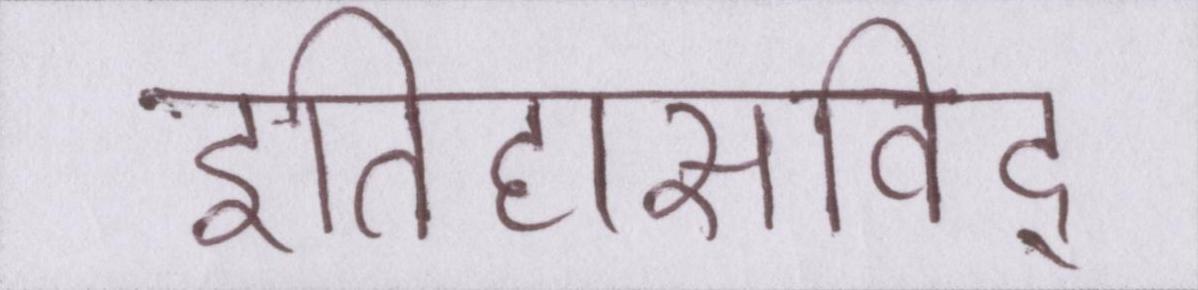 इतिहासविद्